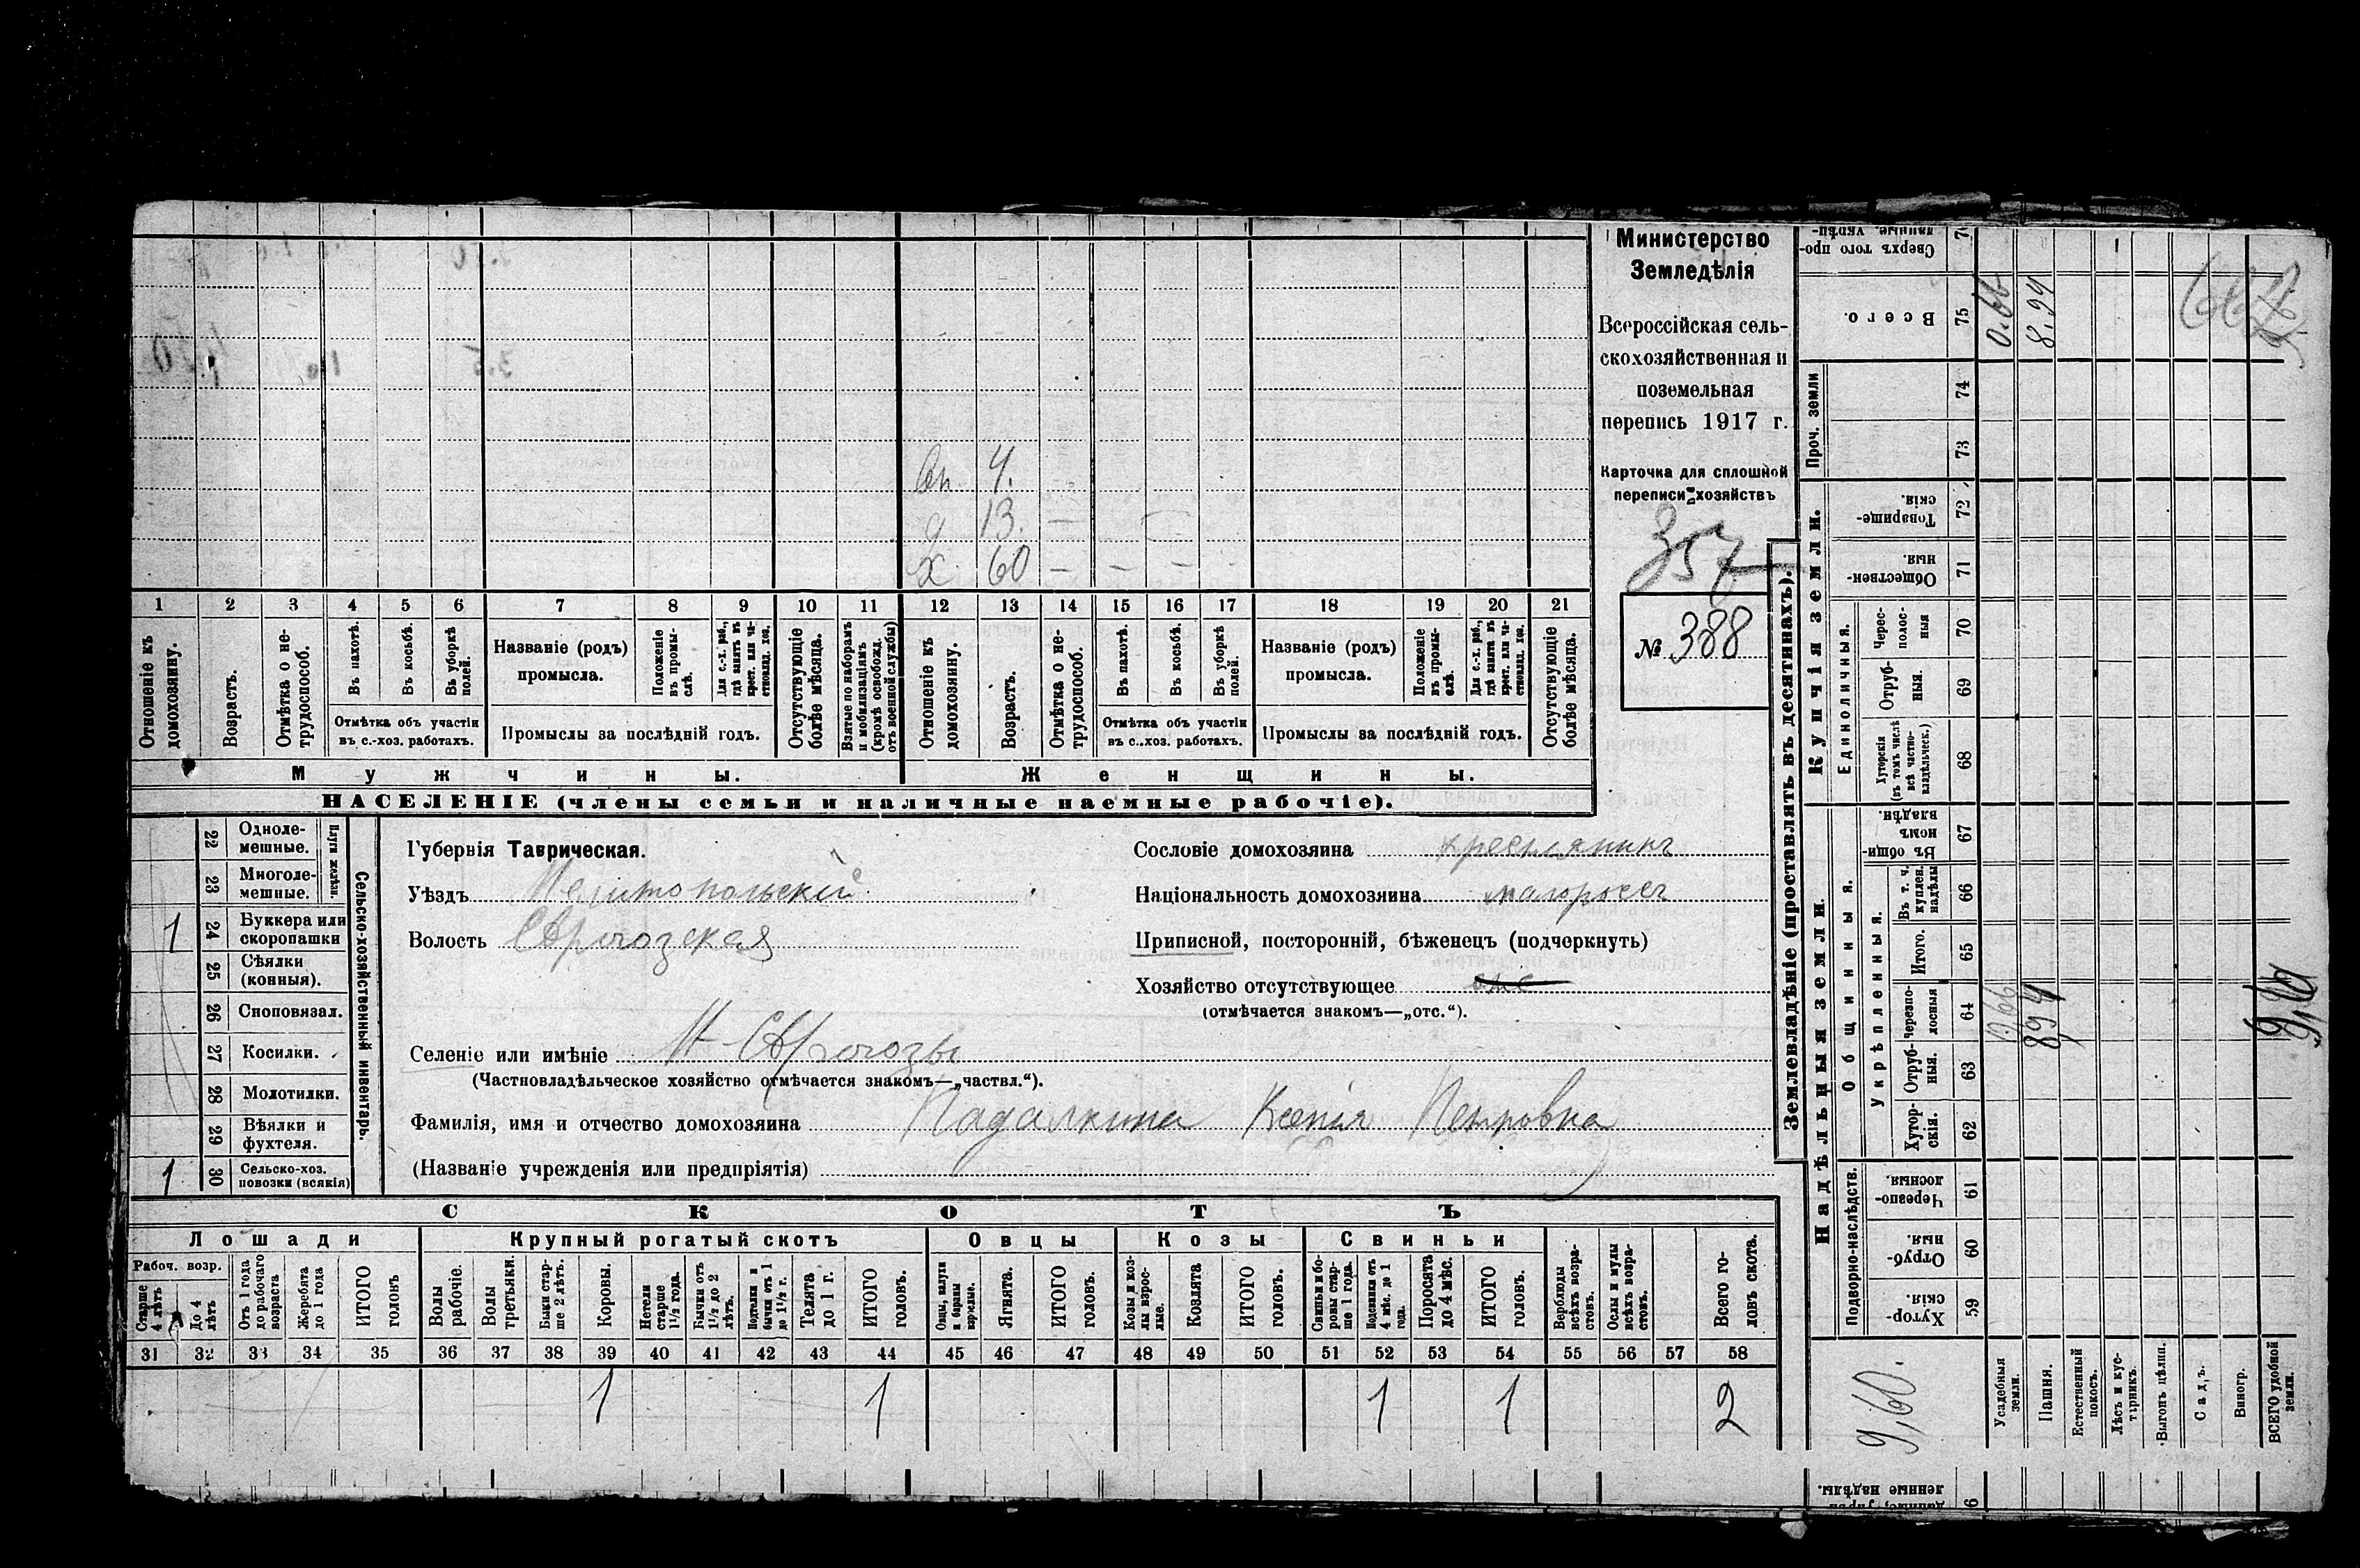 Министерство
Земледѣлія
Всероссійская сель-
скохозяйственная и
поземельная
перепись 1917 г.
Карточка для сплошной
переписи хозяйствъ
357
№ 388
вн. 4.
д 13. — —
х. 60 — — — —
1 2 3 4 5 6 7 8 9 10 11 12 13 14 15 16 17 18 19 20 21
Отношеніе къ домохозяину.
Возрастъ.
Отмѣтка о не-трудоспособ.
Въ пахотѣ.
Въ косьбѣ.
Въ уборкѣ полей.
Отмѣтка объ участіи
въ с.-хоз. работахъ.
Названіе (родъ)
промысла.
Положеніе въ промы-слѣ.
Для с.-х. раб., гдѣ занятъ въ крест. или ча-стновлад. хоз.
Промыслы за послѣдній годъ.
Отсутствующіе болѣе мѣсяца.
Взятые по наборамъ и мобилизаціямъ (кромѣ освобожд. отъ военной службы)
Отношеніе къ домохозяину.
Возрастъ.
Отмѣтка о не-трудоспособ.
Въ пахотѣ.
Въ косьбѣ.
Въ уборкѣ полей.
Отмѣтка объ участіи
въ с.-хоз. работахъ.
Названіе (родъ)
промысла.
Положеніе въ промы-слѣ.
Для с.-х. раб., гдѣ занята въ крест. или ча-стновлад. хоз.
Промыслы за послѣдній годъ.
Отсутствующіе болѣе мѣсяца.
Мужчины. Женщины.
НАСЕЛЕНІЕ (члены семьи и наличные наемные рабочіе).
22 Одноле-мешные.
23 Многоле-мешные.
Плуги желѣзн.
1 24 Буккера или скоропашки
25 Сѣялки (конныя).
26 Сноповязал.
27 Косилки.
28 Молотилки.
29 Вѣялки и фухтеля.
1 30 Сельско-хоз. повозки (всякія)
Сельско-хозяйственный инвентарь.
Губернія Таврическая.
Уѣздъ Мелитопольскій
Волость Сѣрогозская
Селеніе или имѣніе Н-Сѣрогозы
(Частновладѣльческое хозяйство отмѣчается знакомъ—„частвл.“).
Фамилія, имя и отчество домохозяина Падалкина Ксенія Петровна
(Названіе учрежденія или предпріятія)
Сословіе домохозяина крестьянинъ
Національность домохозяина малороссъ
Приписной, посторонній, бѣженецъ (подчеркнуть)
Хозяйство отсутствующее
(отмѣчается знакомъ—„отс.“).
СКОТЪ
Лошади Крупный рогатый скотъ Овцы Козы Свиньи
Рабоч. возр.
Старше 4 лѣтъ
До 4 лѣтъ
Отъ 1 года до рабочаго возраста
Жеребята до 1 года
ИТОГО головъ
Волы рабочіе.
Волы третьяки.
Быки стар-ше 2 лѣтъ.
Коровы.
Нетели старше 1½ года.
Бычки отъ 1½ до 2 лѣтъ.
Подтелки и бычки отъ 1 до 1½ г.
Телята до 1 г.
ИТОГО головъ.
Овцы, валухи и бараны взрослые.
Ягнята.
ИТОГО головъ.
Козы и коз-лы взрос-лые.
Козлята
ИТОГО головъ.
Свиньи и бо-ровы стар-ше 1 года.
Подсвинки отъ 4 мѣс. до 1 года.
Поросята до 4 мѣс.
ИТОГО головъ.
Верблюды всѣхъ возра-стовъ.
Ослы и мулы всѣхъ возра-стовъ.
Всего го-ловъ скота.
31 32 33 34 35 36 37 38 39 40 41 42 43 44 45 46 47 48 49 50 51 52 53 54 55 56 57 58
1 1 1 1 2
Землевладѣніе (проставлять въ десятинахъ).
Надѣльныя земли. Купчія земли. Проч. земли
Подворно-наслѣдств.
Общинныя.
Укрѣпленныя.
Единоличныя.
Хутор-скія. 59
Отруб-ныя. 60
Черезпо-лосныя 61
Хутор-скія. 62
Отруб-ныя. 63
Черезпо-лосныя 64
Итого. 65
Въ т. ч. куплен. надѣлы 66
Въ общин-номъ владѣн. 67
Хуторскія (въ томъ числѣ всѣ частно-владѣльческ.) 68
Отруб-ныя. 69
Черес-полос-ныя 70
Обществен-ныя. 71
Товарище-скія. 72
73
74
Всего. 75
Сверхъ того про-
Усадебныя земли. 0,66 0.66
Пашня. 8,94 8.94
Естественный покосъ.
Лѣсъ и кус-тарникъ.
Выгонъ цѣлин.
Садъ.
Виногр.
ВСЕГО удобной земли.
9,60.